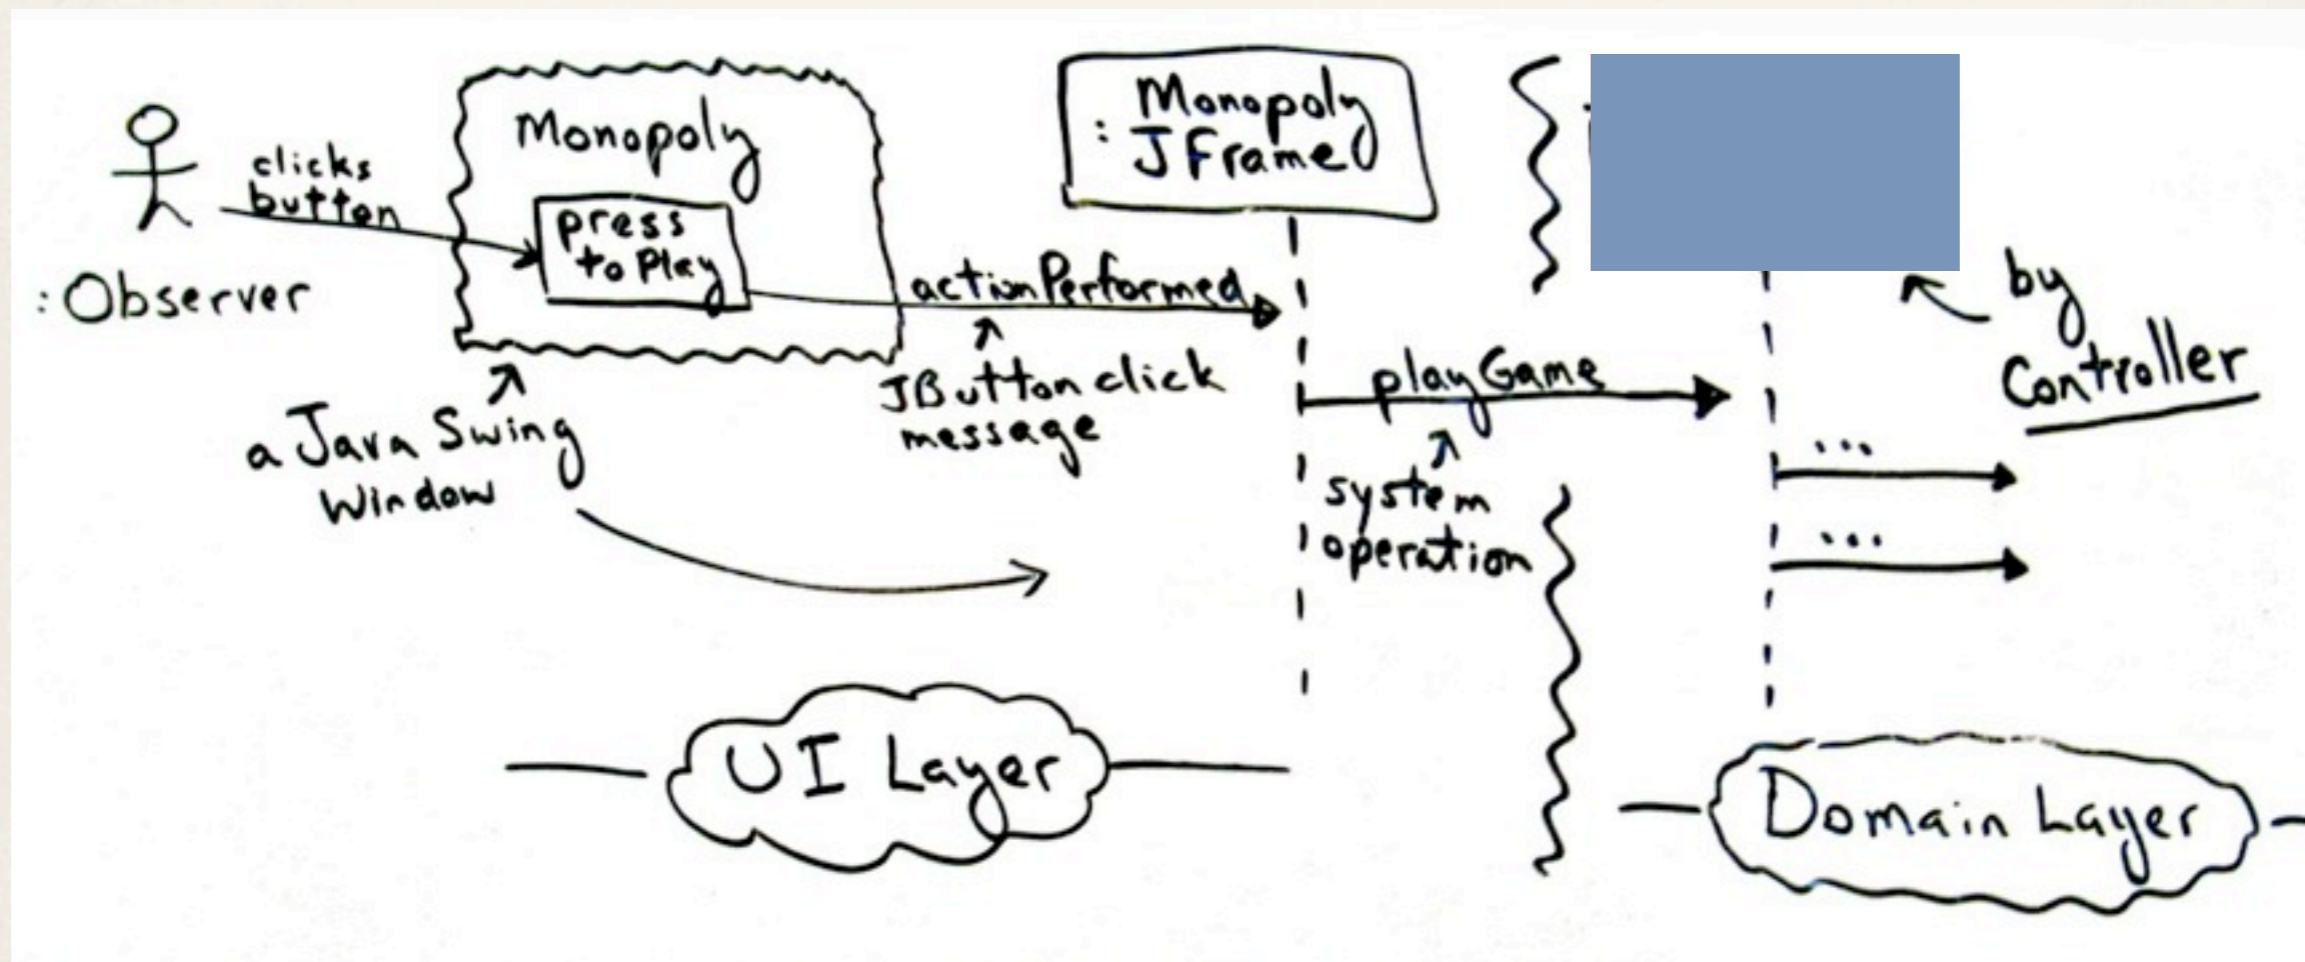 clicks
button
: Observer
Monopoly
press
to Play
a Java Swing
Window
actionPerformed
JButton click
message
Monopoly
: JFrame
playGame
system
operation
by
Controller
...
...
UI Layer
Domain Layer